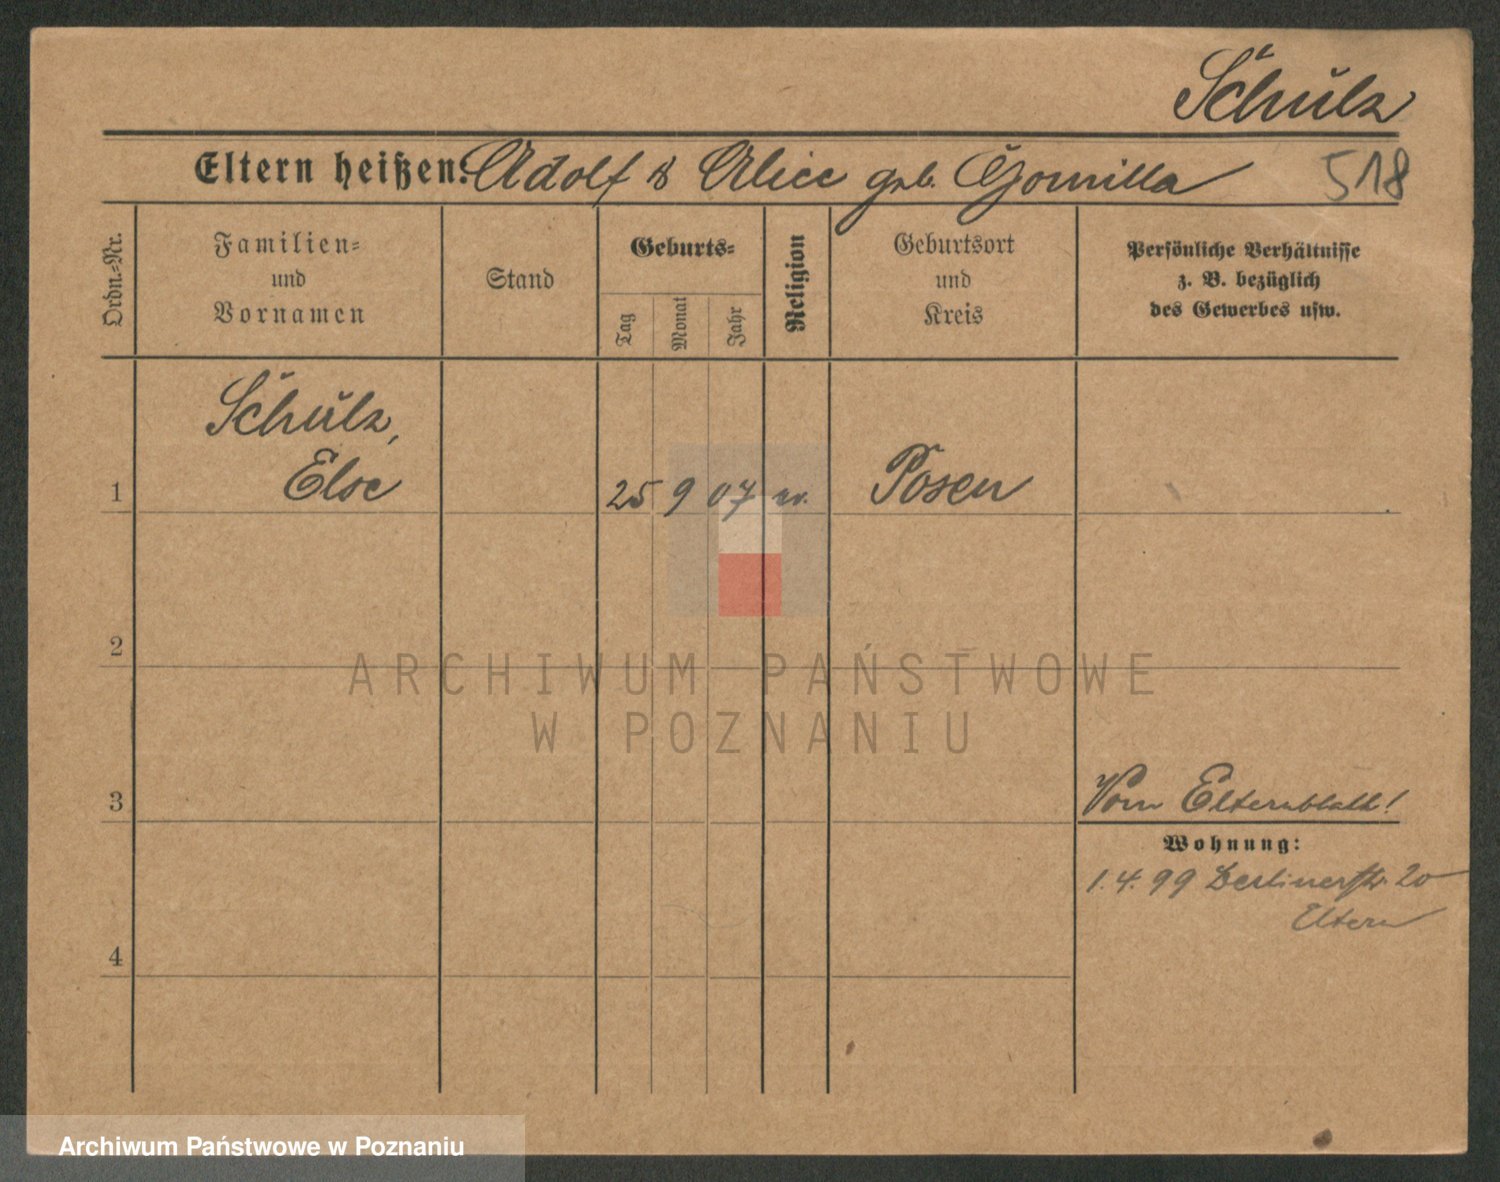 Schulz
Eltern heißen: Adolf & Alice geb. Gomilla
518
Ordn.-Nr.
Familien-
und
Vornamen
Stand
Geburts-
Tag
Monat
Jahr
Religion
Geburtsort
und
Kreis
Persönliche Verhältnisse
z. B. bezüglich
des Gewerbes usw.
Schulz,
1 Else 25 9 07 ev. Posen
2
3
Vom Elternblatt!
Wohnung:
1.4.99 Berlinerstr. 20
Eltern
4
ARCHIWUM PAŃSTWOWE
W POZNANIU
Archiwum Państwowe w Poznaniu